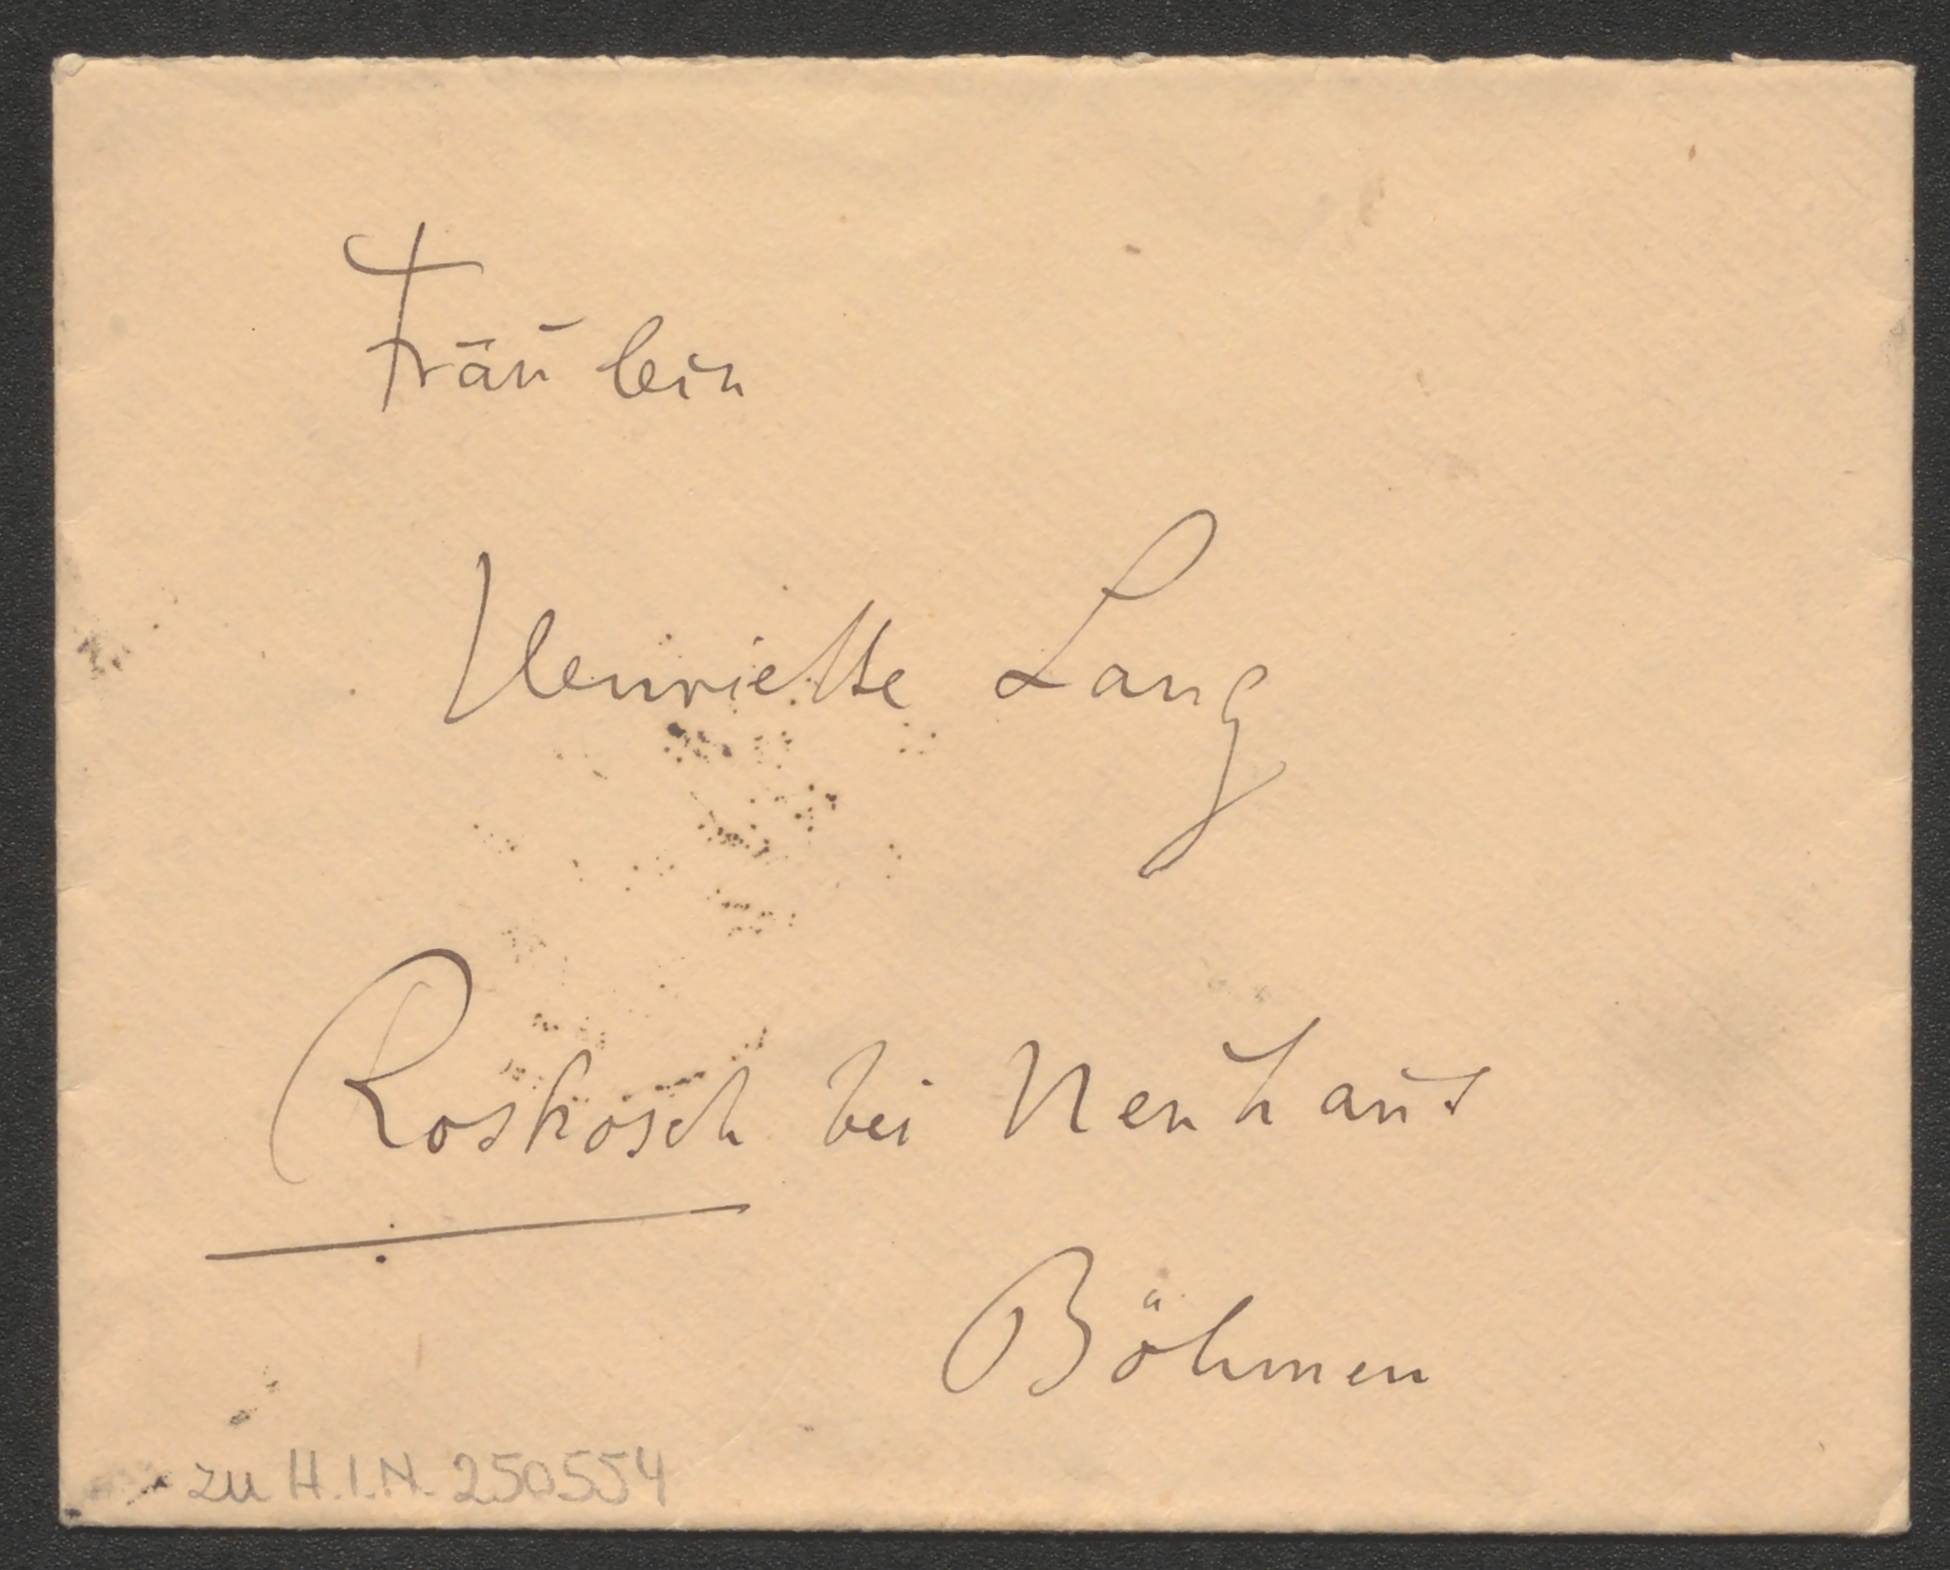 Fräulein
Henriette Lang
Roskosch bei Neuhaus
Böhmen
zu H.I.N. 250554